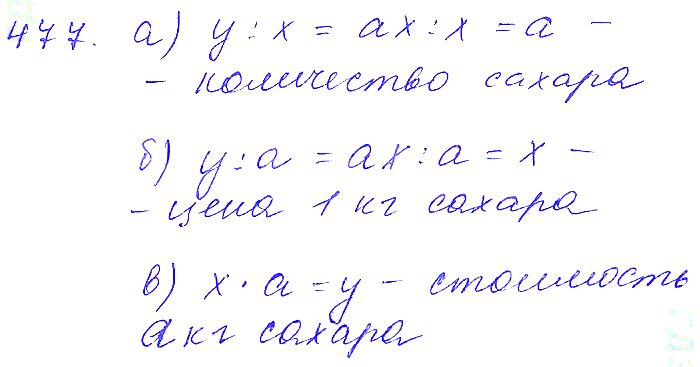 477. а) y : x = ax : x = a –
– количество сахара
б) y : a = ax : a = x –
– цена 1 кг сахара
в) x · a = y – стоимость
a кг сахара